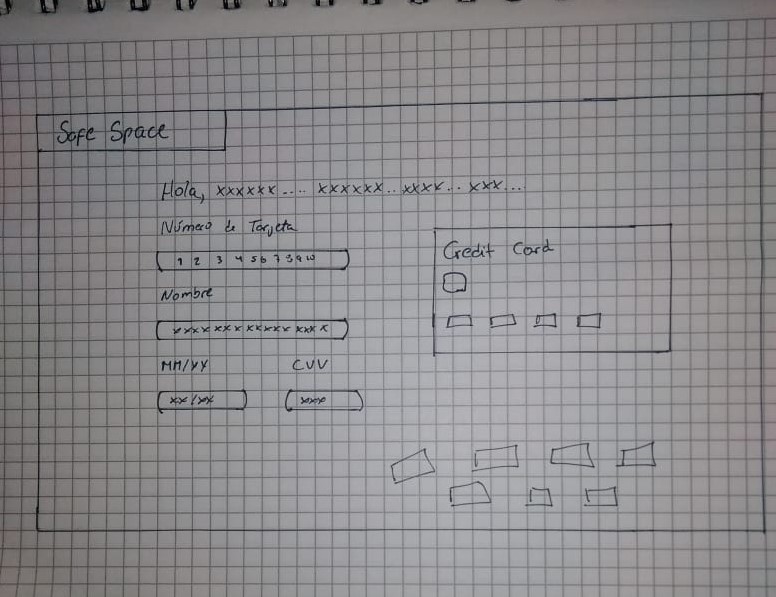 Safe Space
Hola, xxxxxx .... xxxxxx.. xxxx.. xxx...
Número de Tarjeta
1 2 3 4 5 6 7 8 9 10
Nombre
xxxx xxx xxxxxxx xxx x
MM/YY CVV
xx/xx xxxx
Credit Card